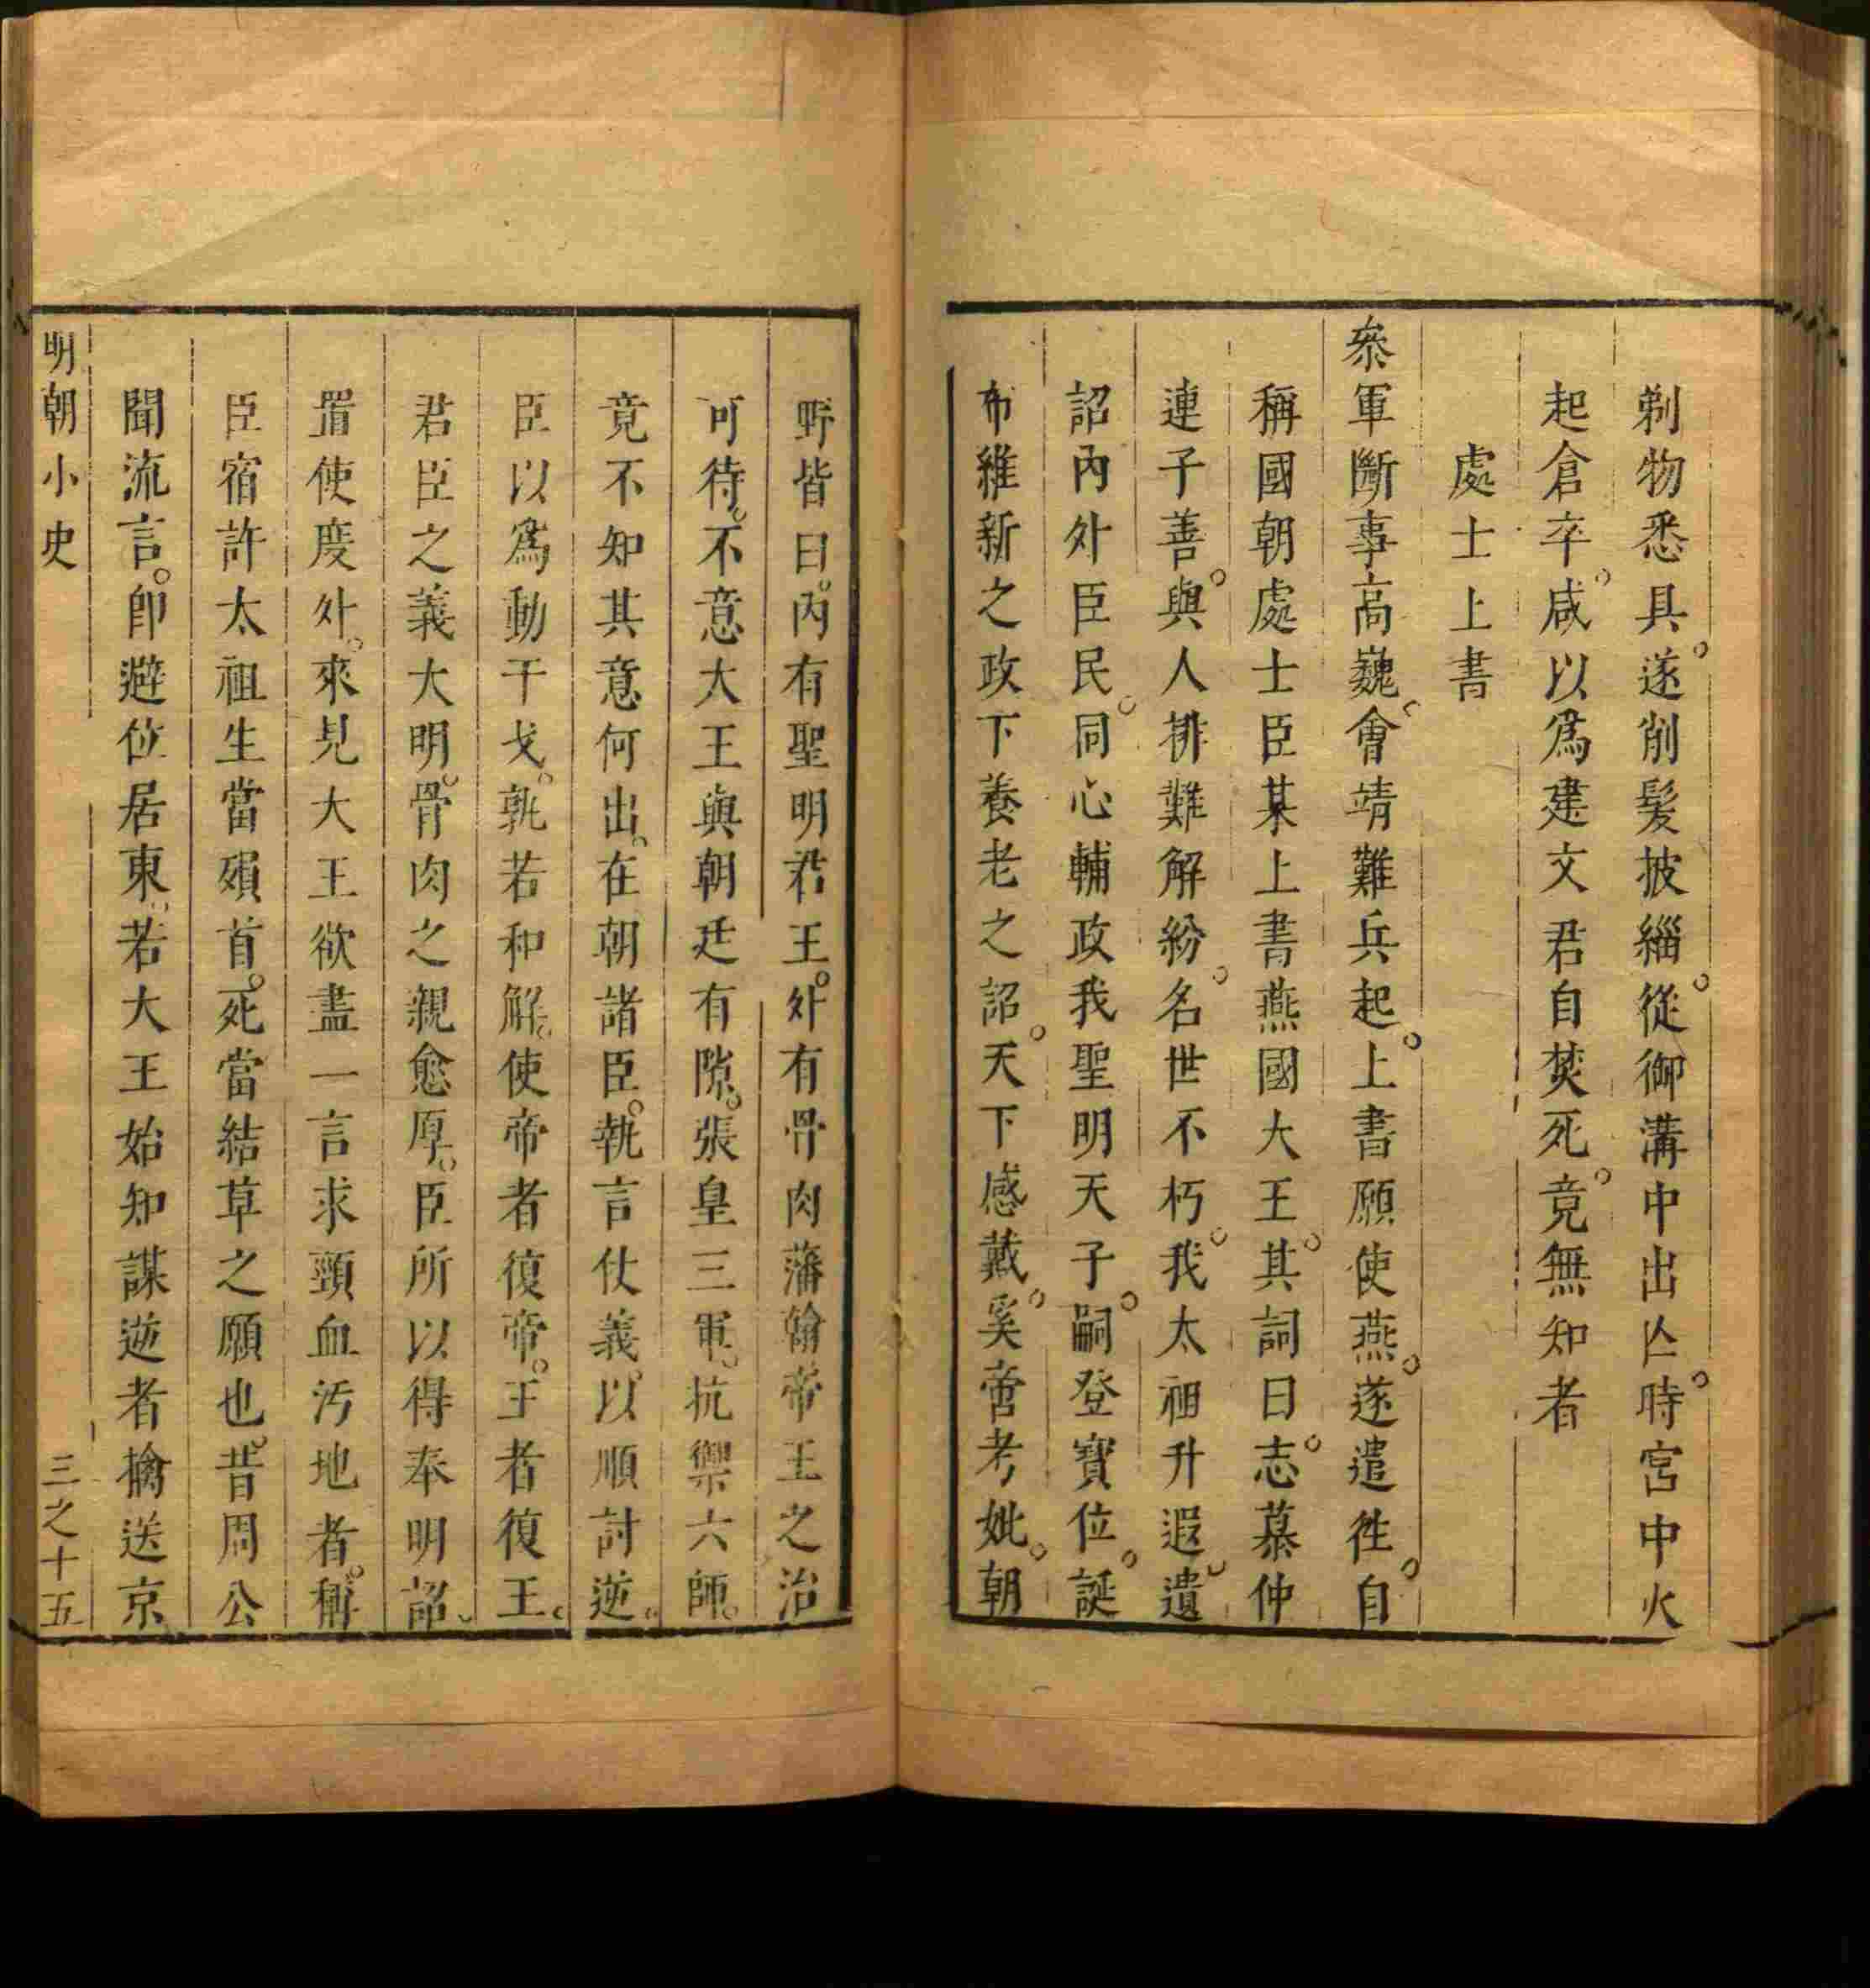 剃物悉具。遂削髮披緇。從御溝中出亾。時宮中火
起倉卒。咸以爲建文君自焚死。竟無知者
處士上書
叅軍斷事高巍。會靖難兵起。上書願使燕。遂遣徃。自
稱國朝處士臣某上書燕國大王。其詞曰。志慕仲
連子善。與人排難解紛。名世不朽。我太祖升遐。遺
詔內外臣民。同心輔政我聖明天子。嗣登寶位。誕
布維新之政下養老之詔。天下感戴。奚啻考妣。朝
野皆曰。內有聖明君王。外有骨肉藩翰帝王之治
可待。不意大王與朝廷有隙。張皇三軍。抗禦六師。
竟不知其意何出。在朝諸臣。執言仗義。以順討逆。
臣以爲動干戈。孰若和解。使帝者復帝。王者復王。
君臣之義大明。骨肉之親愈厚。臣所以得奉明詔。
置使度外。來見大王欲盡一言求頸血汚地者。稱
臣宿許太祖生當殞首。死當結草之願也。昔周公
聞流言。卽避位居東。若大王始知謀逆者擒送京
明朝小史
三之十五